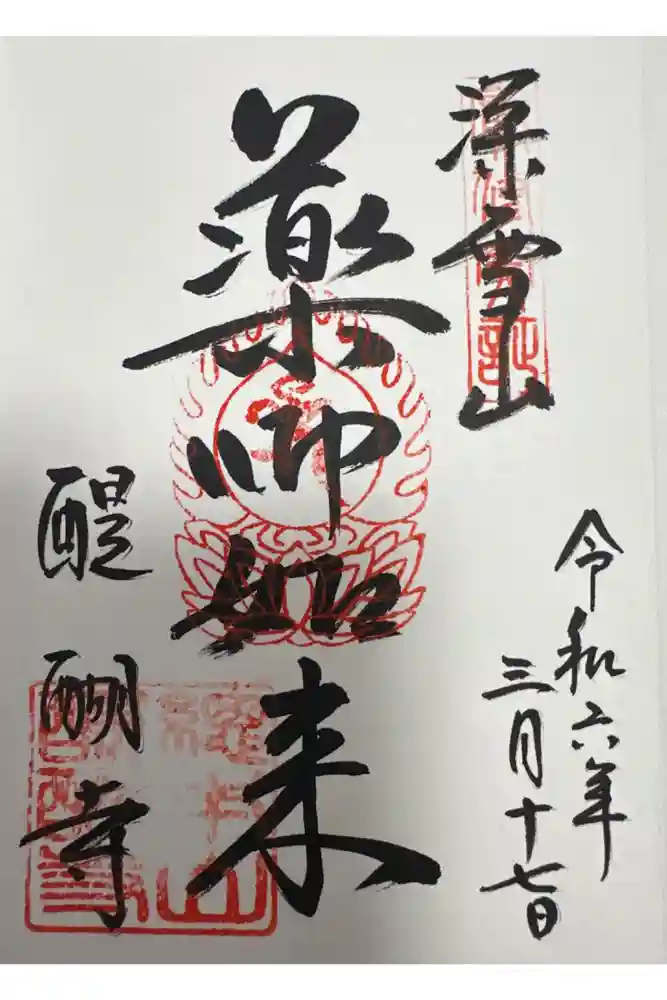 令和六年
三月十七日
深雪山
薬師如来
醍醐寺